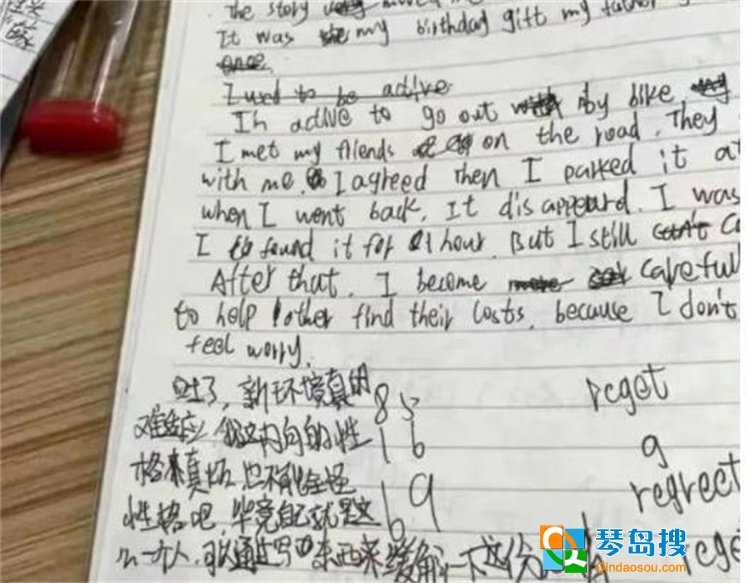 the story moved
It was my birthday gift my father g
I used to be active
In active to go out by bike
I met my friends on the road. They
with me. I agreed Then I parked it at
when I went back, It disappeard. I was
I found it for 1 hour. But I still can't c
After that, I become more careful
to help other find their losts, because I don't
feel worry.
吐了, 新环境真的
难适应 我这内向的性
格来真坏, 也不能全怪
性格吧, 毕竟自己就是这
么一个人, 可以通过写东西来缓解一下这份
85
16
19
6
reget
g
regrect
rege
琴岛搜
Qindaosou.com